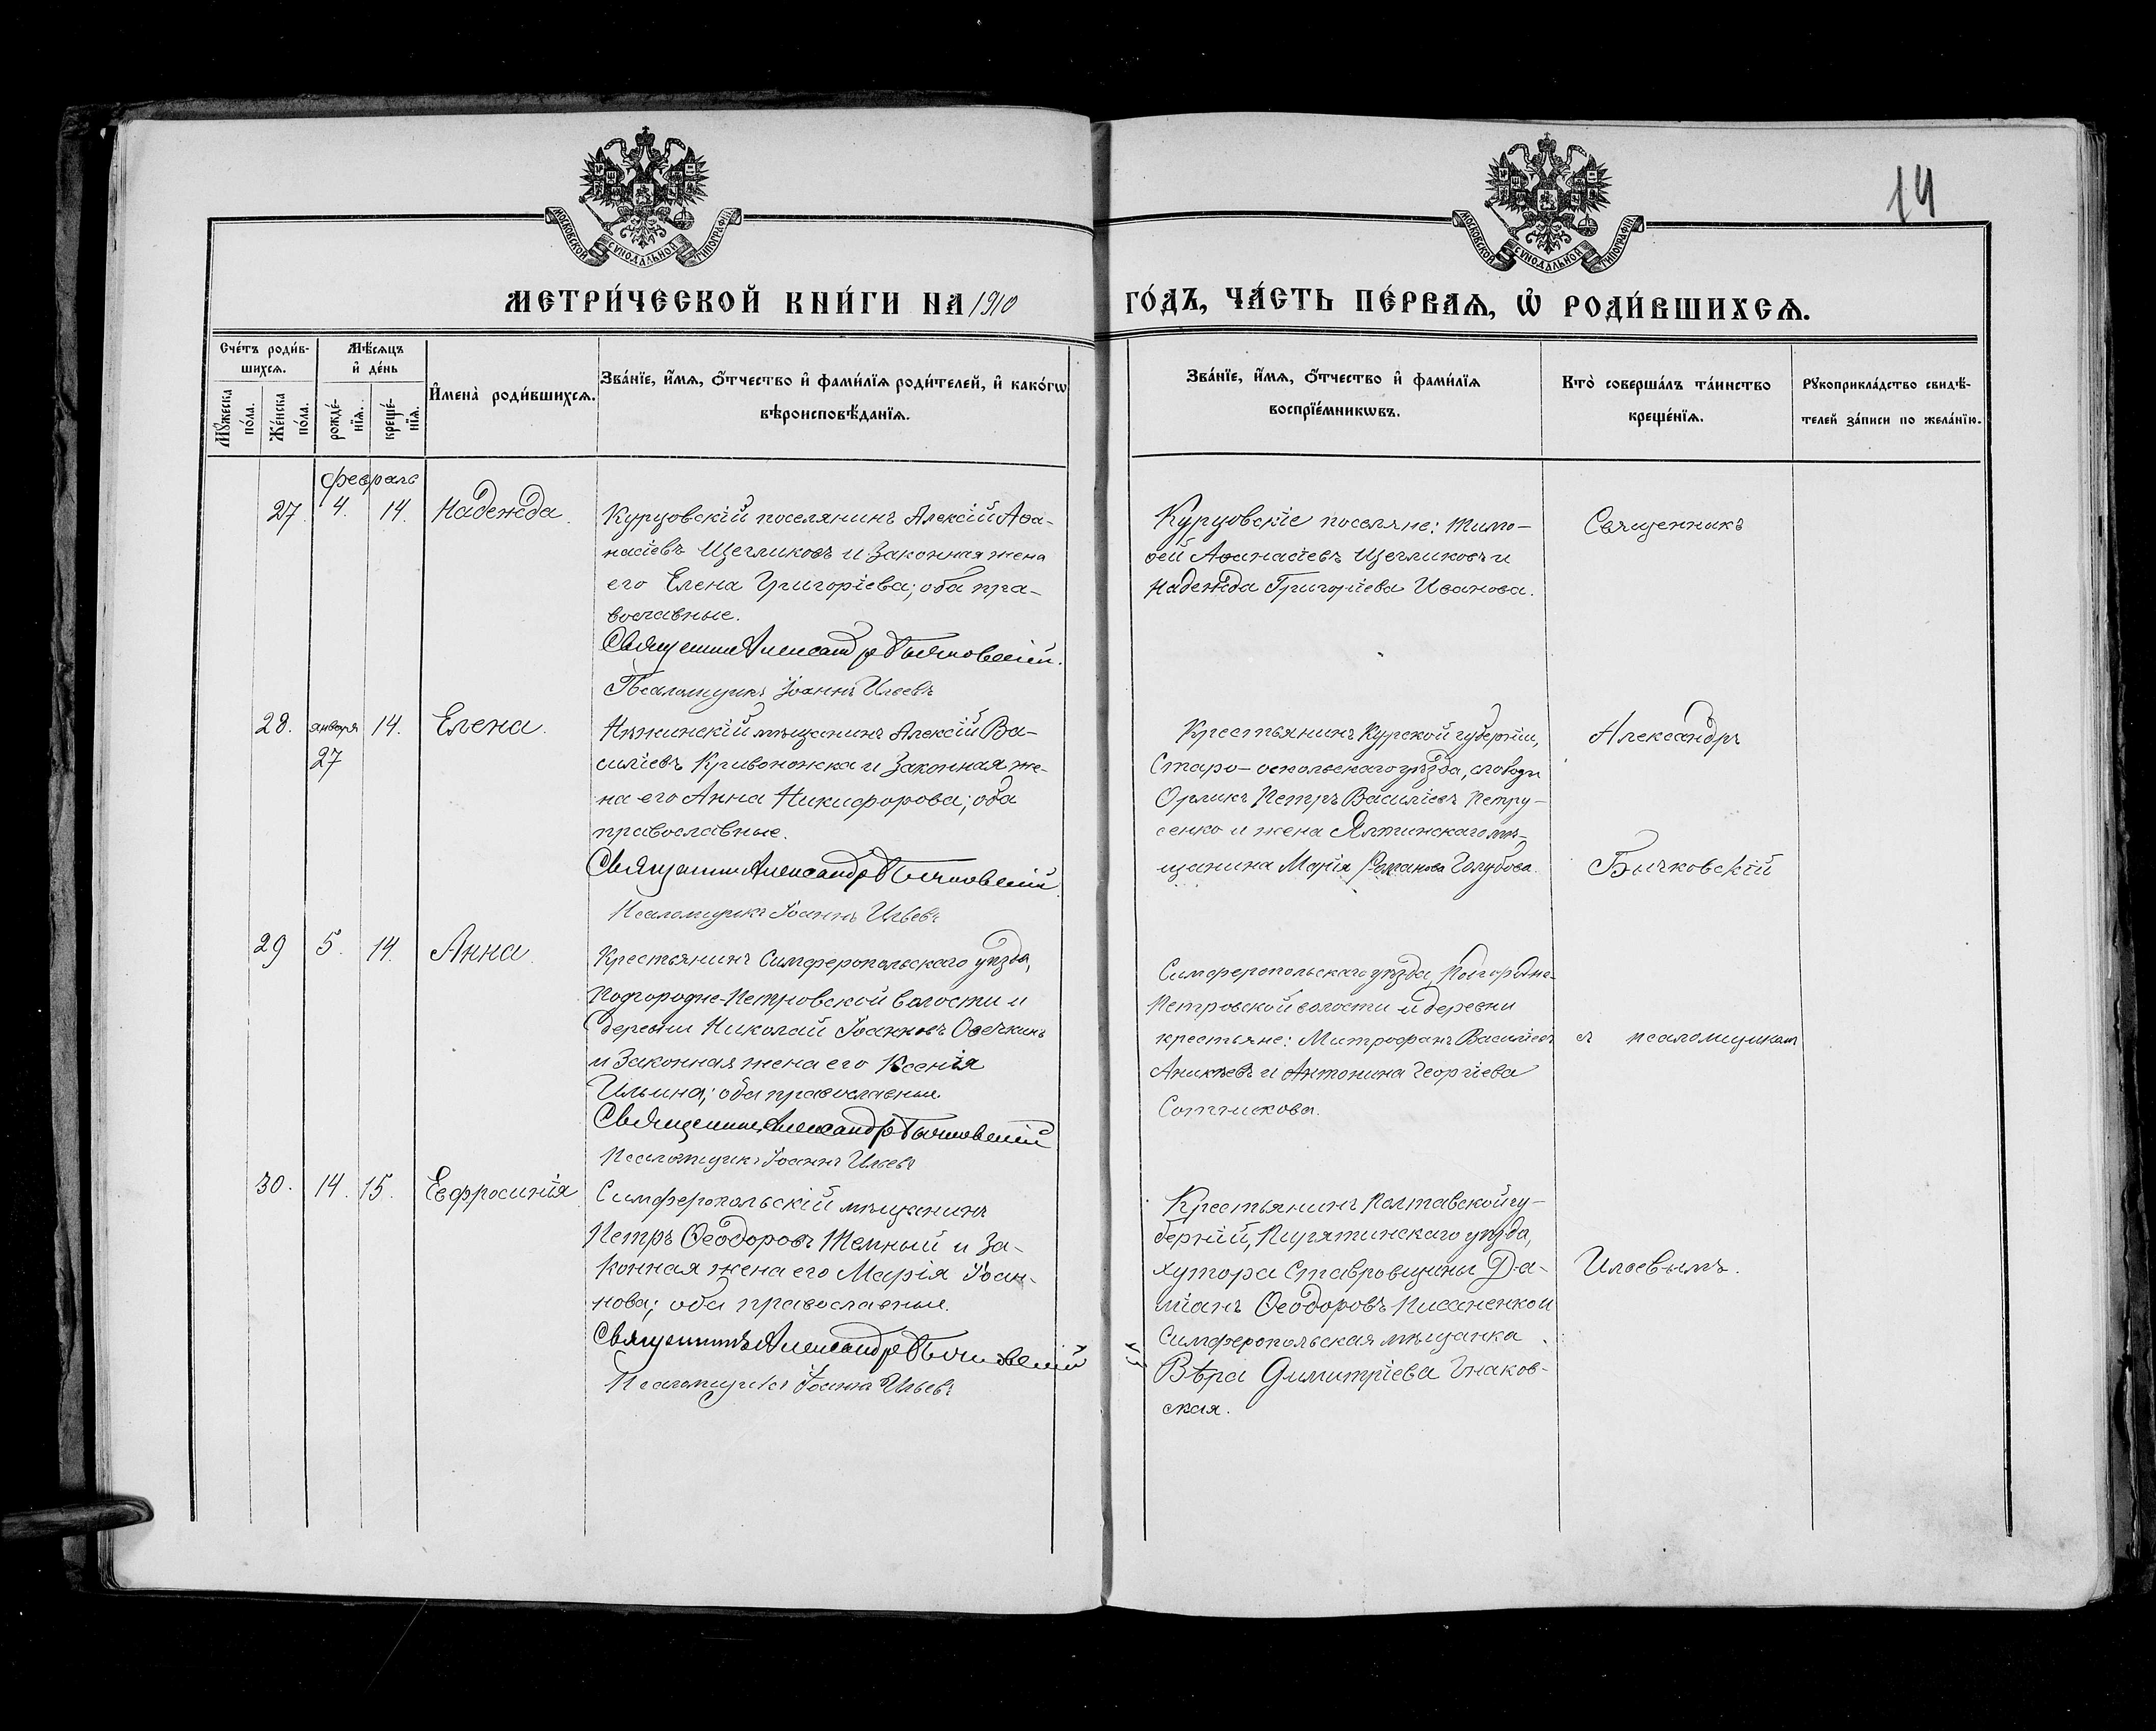 14
МОСКОВСКОЙ СѴНОДАЛЬНОЙ ТИПОГРАФІИ
МОСКОВСКОЙ СѴНОДАЛЬНОЙ ТИПОГРАФІИ
МЕТРИ́ЧЕСКОЙ КНИ́ГИ НА 1910 ГО́ДЪ, ЧА́СТЬ ПЕ́РВАѦ, Ѡ҆ РОДИ́ВШИХСѦ.
Сче́тъ роди́в-
шихсѧ.
Мꙋ́жеска
по́ла.
Же́нска
по́ла.
Мѣ́сѧцъ
и҆ де́нь
рожде́-
нїѧ.
креще́-
нїѧ.
И҆мена̀ роди́вшихсѧ.
Зва́нїе, и҆́мѧ, ѻ҆́тчество и҆ фами́лїѧ роди́телей, и҆ како́гѡ
вѣроисповѣ́данїѧ.
Зва́нїе, и҆́мѧ, ѻ҆́тчество и҆ фами́лїѧ
воспрїе́мникѡвъ.
Кто̀ соверша́лъ та́инство
креще́нїѧ.
Рꙋкоприкла́дство свидѣ́-
телей за́писи по жела́нїю.
Февраль
27. 4. 14. Надежда.
Курцовскій поселянинъ Алексій Аѳа-
насіевъ Щегликовъ и законная жена
его Елена Григоріева; оба пра-
вославные.
Священникъ Александръ Бычковскій.
Псаломщикъ Іоаннъ Ильевъ
Курцовскіе поселяне: Тимо-
ѳей Аѳанасіевъ Щегликовъ и
Надежда Григоріева Иванова.
Священникъ
28. января 14. Елена.
27
Нѣжинскій мѣщанинъ Алексій Ва-
силіевъ Кривоножка и законная же-
на его Анна Никифорова; оба
православные.
Священникъ Александръ Бычковскій
Псаломщикъ Іоаннъ Ильевъ
Крестьянинъ Курской губерніи,
Старо-оскольскаго уѣзда, слободы
Орликъ Петръ Василіевъ Петру-
сенко и жена Ялтинскаго мѣ-
щанина Марія Романова Голубова.
Александръ
Бычковскій
29 5. 14. Анна.
Крестьянинъ Симферопольскаго уѣзда,
Подгородне-Петровской волости и
деревни Николай Іоанновъ Овечкинъ
и законная жена его Ксенія
Ильина; оба православные.
Священникъ Александръ Бычковскій
Псаломщикъ Іоаннъ Ильевъ
Симферопольскаго уѣзда, Подгородне-
Петровской волости и деревни
крестьяне: Митрофанъ Василіевъ
Аникѣевъ и Антонина Георгіева
Сотникова.
съ псаломщикомъ
30. 14. 15. Евфросинія
Симферопольскій мѣщанинъ
Петръ Ѳеодоровъ Темный и за-
конная жена его Марія Іоан-
нова; оба православные.
Священникъ Александръ Бычковскій
Псаломщикъ Іоаннъ Ильевъ
Крестьянинъ Полтавской гу-
берній, Пирятинскаго уѣзда,
хутора Ставровщины Да-
міанъ Ѳеодоровъ Писаненко и
Симферопольская мѣщанка
Вѣра Димитріева Гнаков-
ская.
Ильевымъ.